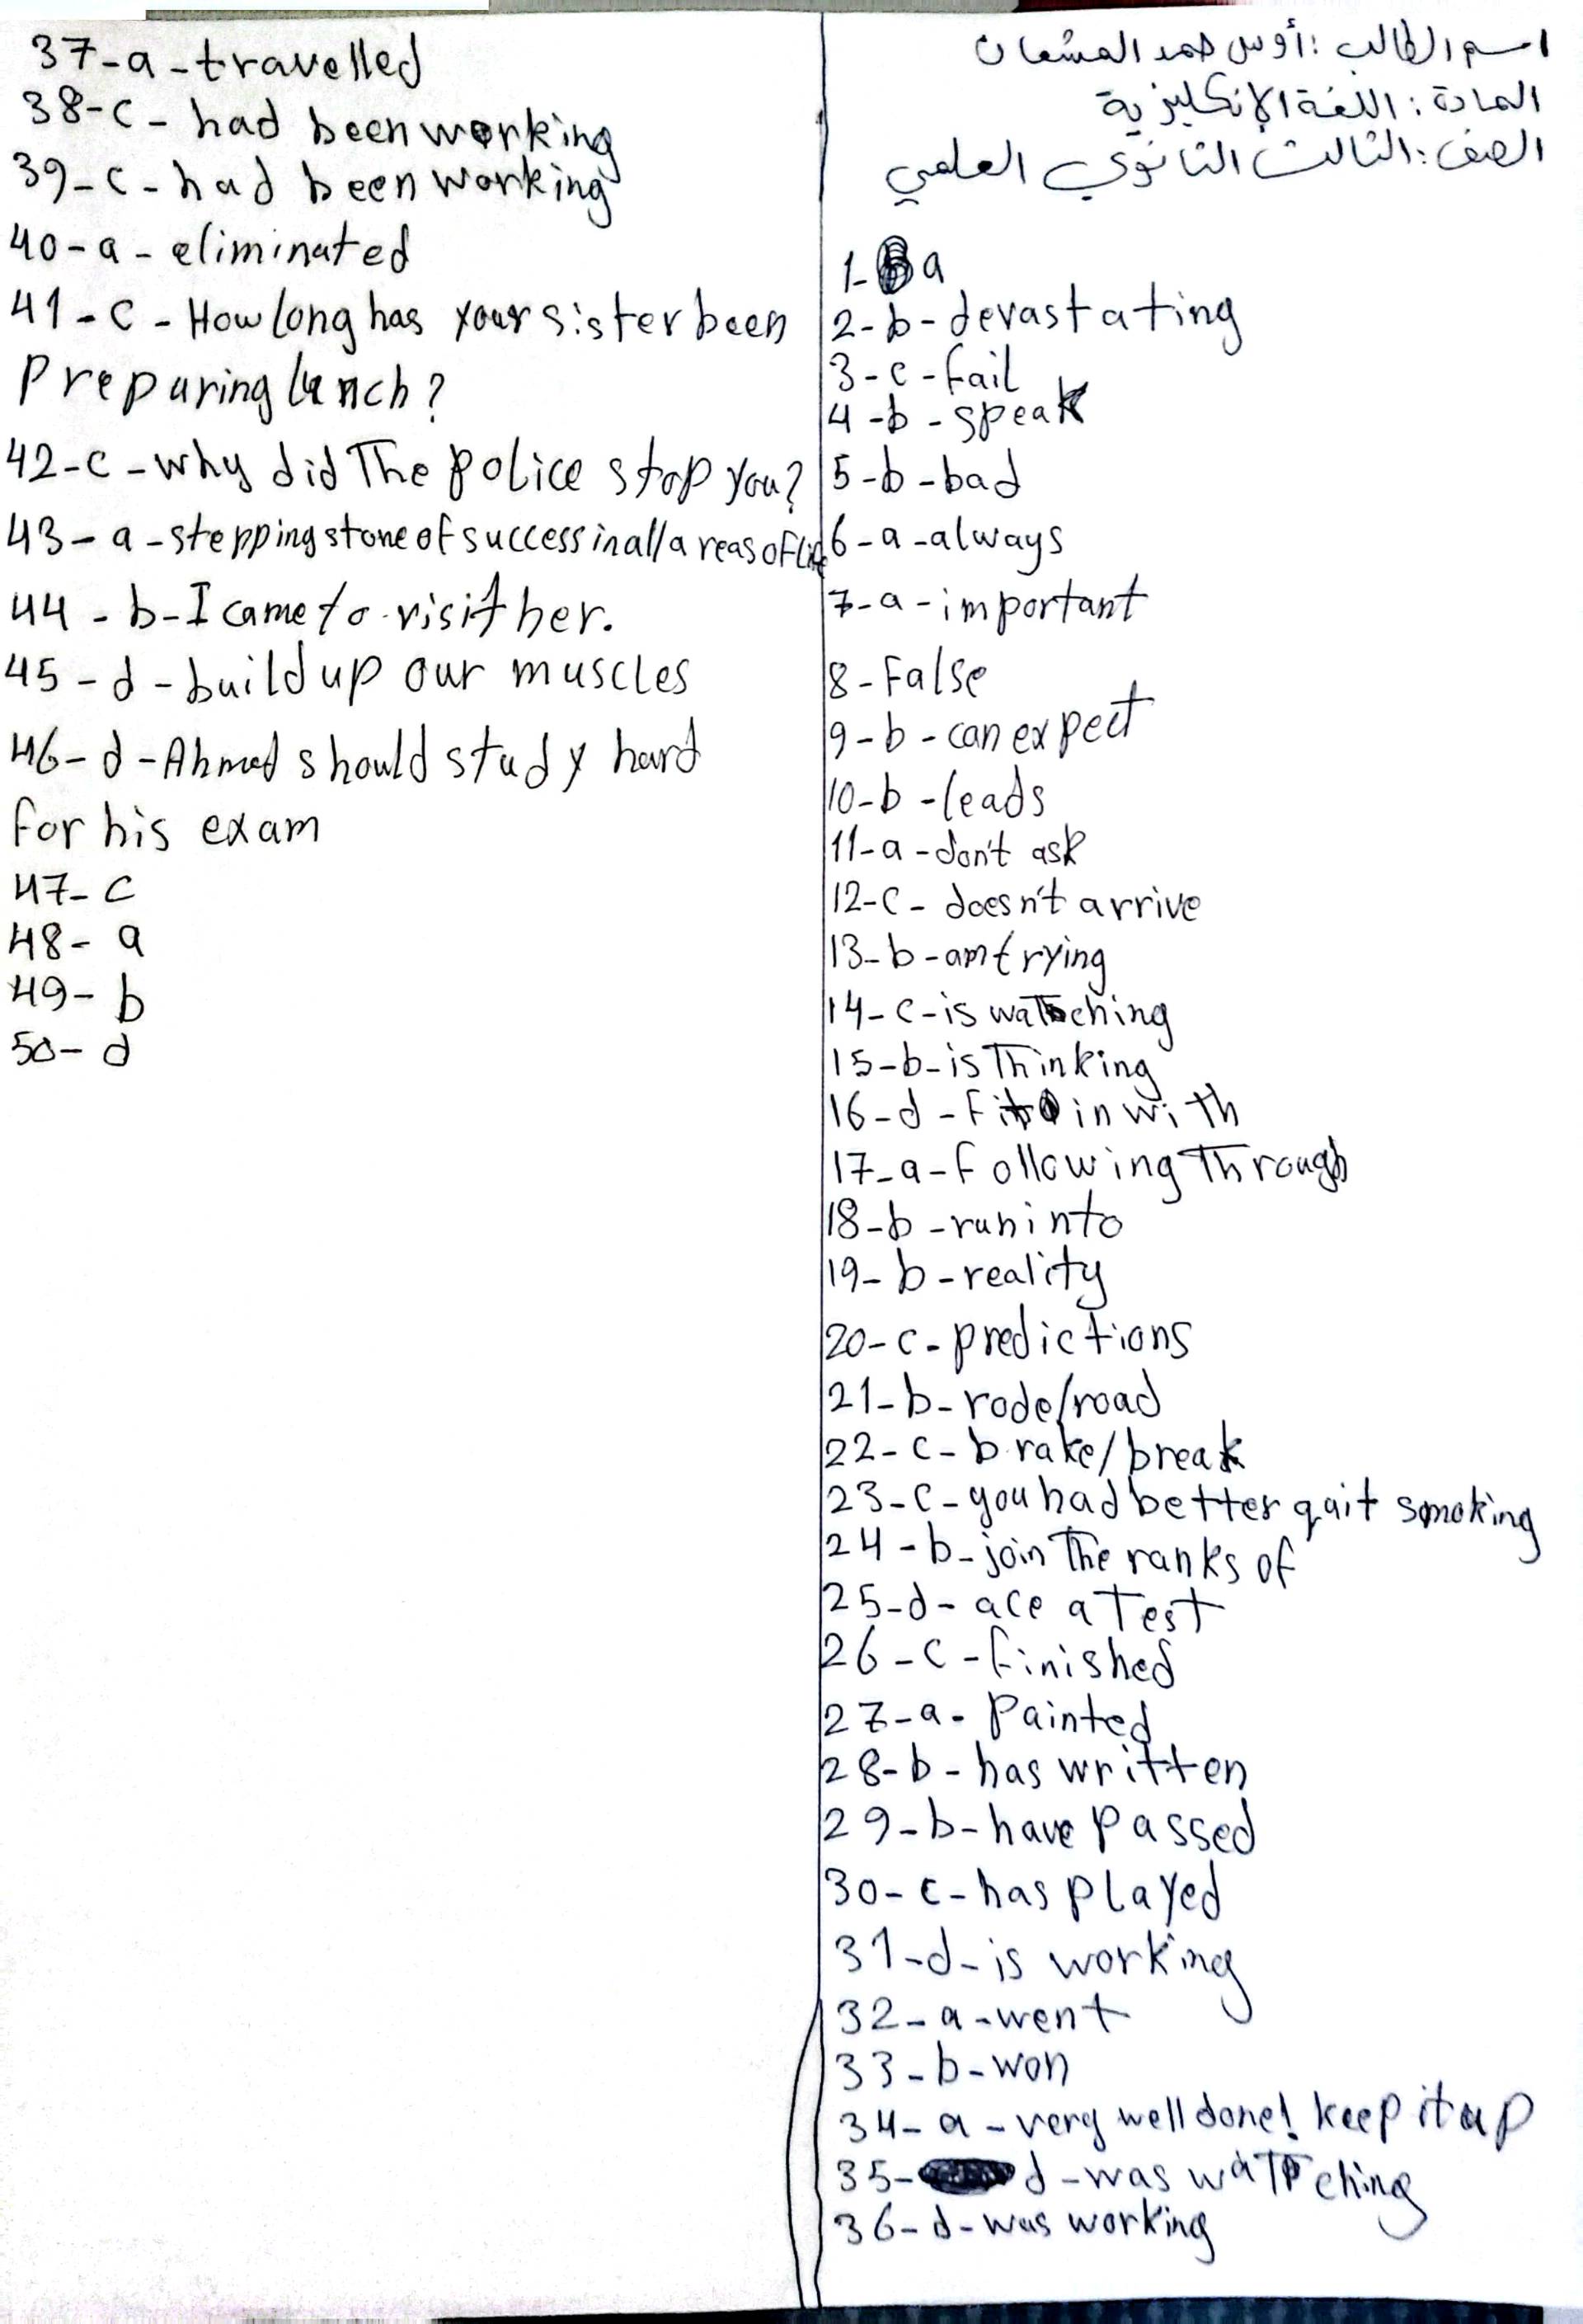 اسم الطالب: أوس حمد المشعان
المادة: اللغة الإنكليزية
الصف: الثالث الثانوي العلمي
1- a
2-b-devastating
3-c-fail
4-b-speak
5-b-bad
6-a-always
7-a-important
8-False
9-b-can expect
10-b-leads
11-a-don't ask
12-c-doesn't arrive
13-b-am trying
14-c-is watching
15-b-is Thinking
16-d-Fit in with
17-a-Following Through
18-b-run into
19-b-reality
20-c-predictions
21-b-rode/road
22-c-brake/break
23-c-you had better quit smoking
24-b-join The ranks of
25-d-ace a Test
26-c-finished
27-a-Painted
28-b-has written
29-b-have Passed
30-c-has played
31-d-is working
32-a-went
33-b-won
34-a-very well done! keep it up
35- d-was watching
36-d-was working
37-a-travelled
38-c-had been working
39-c-had been working
40-a-eliminated
41-c-How long has your sister been
Preparing lunch?
42-c-why did The police stop you?
43-a-stepping stone of success in all areas of life
44-b-I came to visit her.
45-d-build up our muscles
46-d-Ahmed should study hard
for his exam
47-c
48-a
49-b
50-d